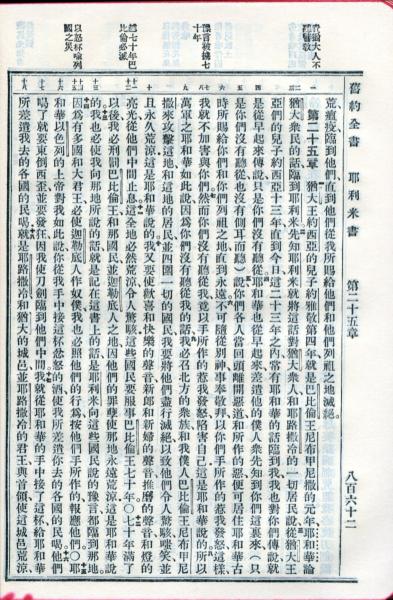 舊約全書 耶利米書 第二十五章 八百六十二
責猶大人不
荒、瘟疫臨到他們、直到他們從我所賜給他們和他們列祖之地滅絕。
第二十五章 猶大王約西亞的兒子約雅敬第四年、就是巴比倫王尼布甲尼撒的元年、耶和華論
猶大衆民的話臨到耶利米先知耶利米就將這話對猶大衆人和耶路撒冷的一切居民說、從猶大王
亞們的兒子約西亞十三年直到今日這二十三年之內常有耶和華的話臨到我我也對你們傳說就
是從早起來傳說只是你們沒有聽從耶和華也從早起來差遣他的僕人衆先知到你們這裏來（只
是你們沒有聽從也沒有側耳而聽）說你們各人當回頭離開惡道和所作的惡便可居住耶和華古
時所賜給你們和你們列祖之地直到永遠不可隨從別神事奉敬拜以你們手所作的惹我發怒這樣
豫言被擄七
十年
我就不加害與你們然而你們沒有聽從我竟以手所作的惹我發怒陷害自己這是耶和華說的所以
萬軍之耶和華如此說因爲你們沒有聽從我的話我必召北方的衆族和我僕人巴比倫王尼布甲尼
撒來攻擊這地和這地的居民並四圍一切的國民我要將他們盡行滅絕以致他們令人驚駭嗤笑並
且永久荒涼這是耶和華說的我又要使歡喜和快樂的聲音新郎和新婦的聲音推磨的聲音和燈的
過七十年巴
比倫必滅
亮光從他們中間止息這全地必然荒涼令人驚駭這些國民要服事巴比倫王七十年○七十年滿了
以後我必刑罰巴比倫王和那國民並迦勒底人之地因他們的罪孽使那地永遠荒涼這是耶和華說
的我也必使我向那地所說的話就是記在這書上的話是耶利米向這些國民說的豫言都臨到那地
以忿杯喻列
國之災
因爲有多國和大君王必使迦勒底人作奴僕我也必照他們的行爲按他們手所作的報應他們○耶
和華以色列的上帝對我如此說你從我手中接這杯忿怒的酒使我所差遣你去的各國的民喝他們
喝了就要東倒西歪並要發狂因我使刀劍臨到他們中間我就從耶和華的手中接了這杯給耶和華
所差遣我去的各國的民喝就是耶路撒冷和猶大的城邑並耶路撒冷的君王與首領使這城邑荒涼